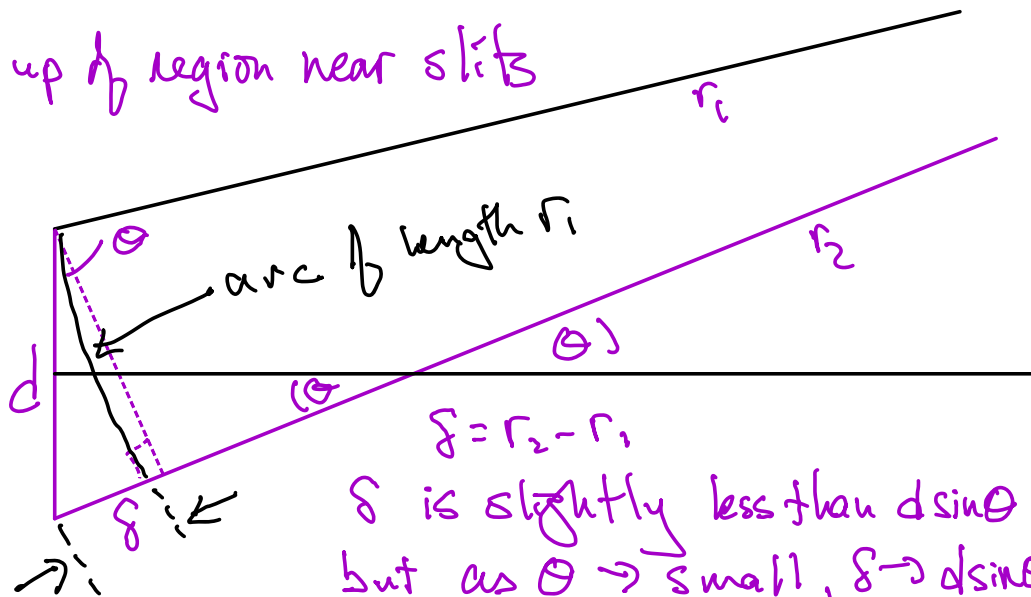 up of region near slits
r₁
θ
arc of length r₁
r₂
d
(θ
θ)
δ = r₂ - r₁
δ
δ is slightly less than d sinθ
but as θ → small, δ → d sinθ